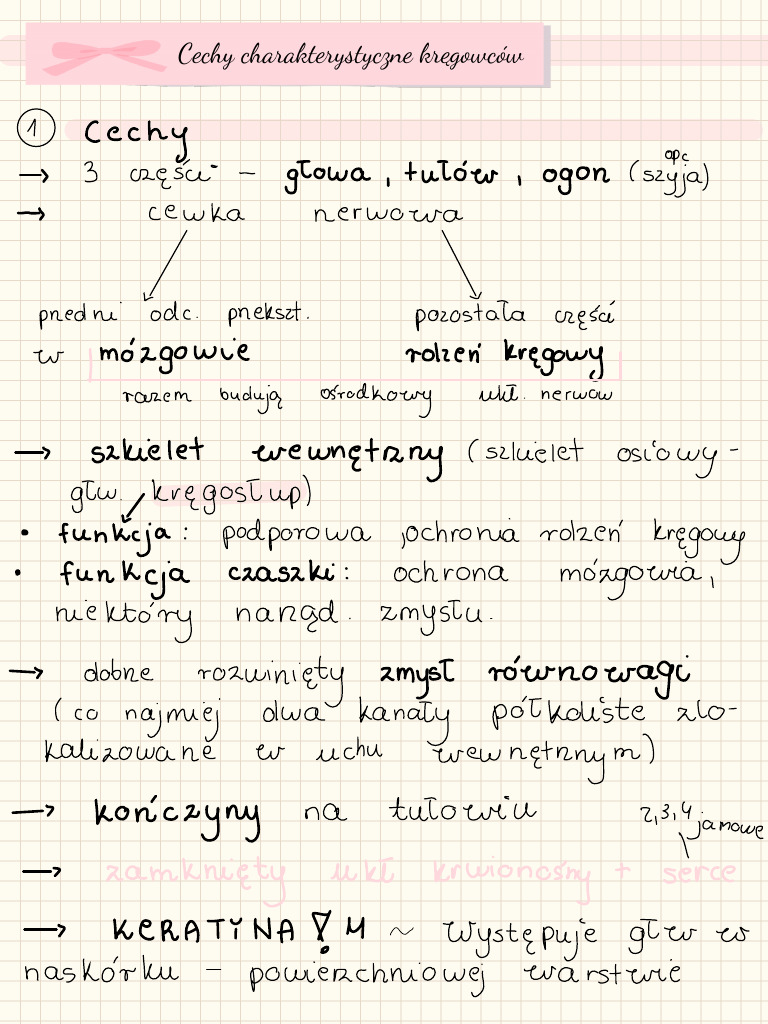 Cechy charakterystyczne kręgowców
1 Cechy
→ 3 części - głowa, tułów, ogon (szyja) opc
→ cewka nerwowa
przedni odc. przekszt. pozostała część
w mózgowie rdzeń kręgowy
razem budują ośrodkowy ukł. nerwow
→ szkielet wewnętrzny (szkielet osiowy -
głw. kręgosłup)
• funkcja: podporowa, ochronia rdzeń kręgowy
• funkcja czaszki: ochrona mózgowia,
niektóry narząd. zmysłu.
→ dobrze rozwinięty zmysł równowagi
(co najmiej dwa kanały półkoliste zlo-
kalizowane w uchu wewnętrznym)
→ kończyny na tułowiu 2,3,4 jamowe
→ zamknięty ukł krwionośny + serce
→ KERATYNA! ~ Występuje głw w
naskórku - powierzchniowej warstwie